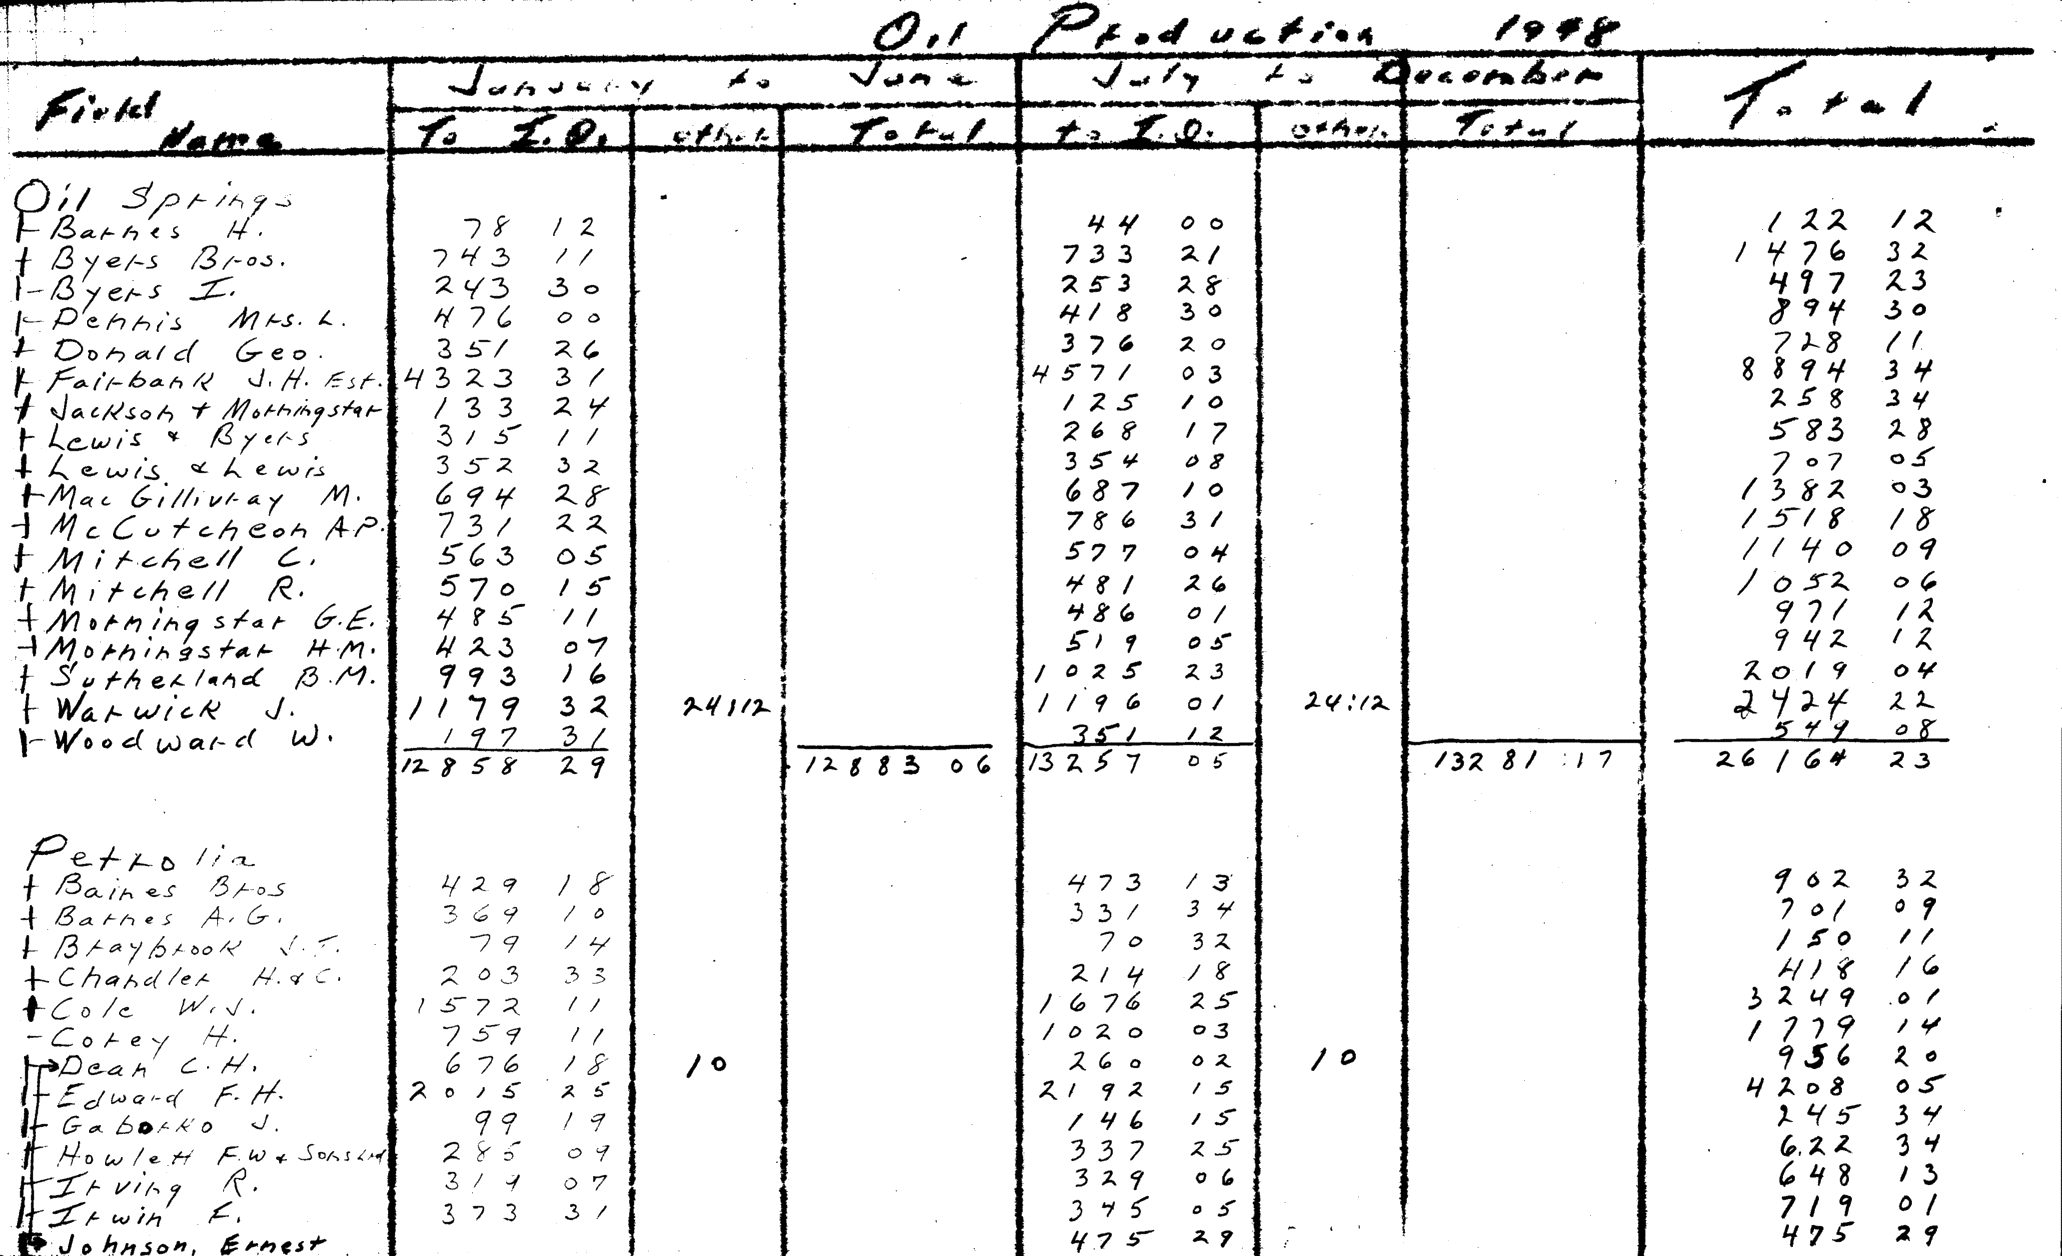 Oil Production 1948
January to June July to December
Field Name To I.O. other Total to I.O. other Total Total
Oil Springs
Barnes H. 78 12 44 00 122 12
+ Byers Bros. 743 11 733 21 1476 32
Byers I. 243 30 253 28 497 23
Dennis Mrs. L. 476 00 418 30 894 30
+ Donald Geo. 351 26 376 20 728 11
+ Fairbank J.H. Est. 4323 31 4571 03 8894 34
+ Jackson + Morningstar 133 24 125 10 258 34
+ Lewis & Byers 315 11 268 17 583 28
+ Lewis & Lewis 352 32 354 08 707 05
+ MacGillivray M. 694 28 687 10 1382 03
+ McCutcheon A.P. 731 22 786 31 1518 18
+ Mitchell C. 563 05 577 04 1140 09
+ Mitchell R. 570 15 481 26 1052 06
+ Morningstar G.E. 485 11 486 01 971 12
+ Morningstar H.M. 423 07 519 05 942 12
+ Sutherland B.M. 993 16 1025 23 2019 04
+ Warwick J. 1179 32 24:12 1196 01 24:12 2424 22
Woodward W. 197 31 351 12 549 08
12858 29 12883 06 13257 05 13281:17 26164 23
Petrolia
+ Baines Bros 429 18 473 13 902 32
+ Barnes A.G. 369 10 331 34 701 09
+ Braybrook J.T. 79 14 70 32 150 11
+ Chandler H.&C. 203 33 214 18 418 16
+ Cole W.J. 1572 11 1676 25 3249 01
- Corey H. 759 11 1020 03 1779 14
Dean C.H. 676 18 10 260 02 10 956 20
Edward F.H. 2015 25 2192 15 4208 05
Gaborko J. 99 19 146 15 245 34
Howlett F.W & Sons Ltd 285 09 337 25 622 34
Irving R. 319 07 329 06 648 13
Irwin F. 373 31 345 05 719 01
Johnson, Ernest 475 29 475 29